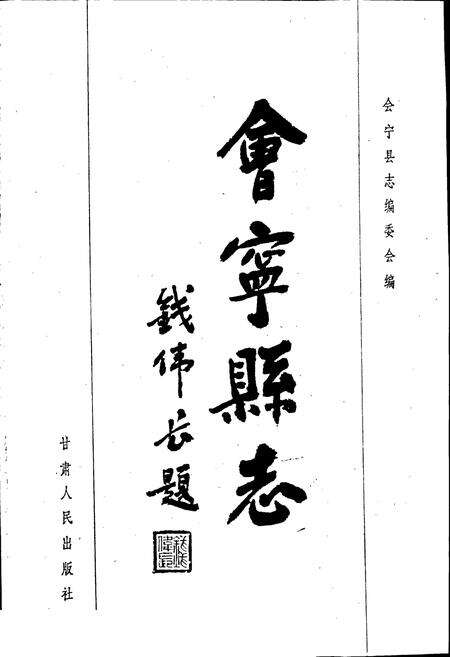 会宁县志编委会编
會寧縣志
钱伟长题
甘肃人民出版社